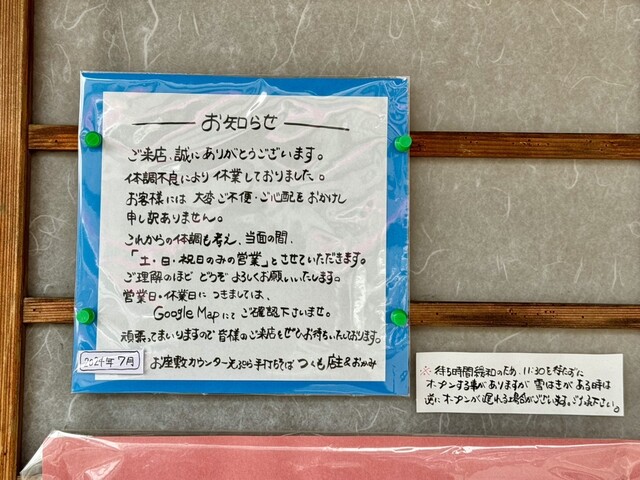 お知らせ
ご来店、誠にありがとうございます。
体調不良により休業しておりました。
お客様には大変ご不便・ご心配をおかけし
申し訳ありません。
これからの体調も考え、当面の間、
「土・日・祝日のみの営業」とさせていただきます。
ご理解のほどどうぞよろしくお願いいたします。
営業日・休業日につきましては、
Google Mapにてご確認下さいませ。
頑張ってまいりますので皆様のご来店をぜひお待ちいたしております。
2024年7月
お座敷カウンター天ぷら手打ちそば つくも 店主&おかみ
※待ち時間緩和のため、11:30を待たずに
オープンする事がありますが雪はきがある時は
逆にオープンが遅れる場合がございます。ご了承下さい。